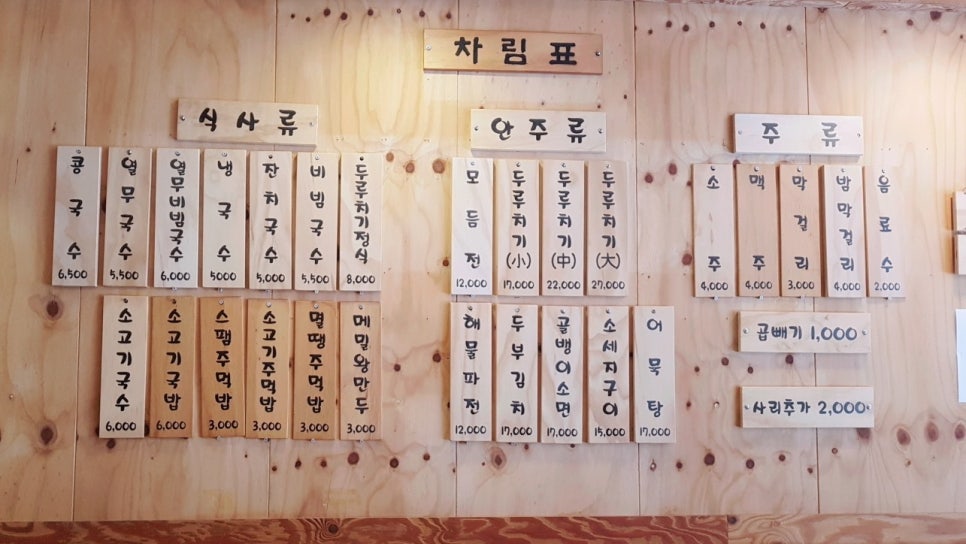 차림표
식사류
콩국수 6,500
열무국수 5,500
열무비빔국수 6,000
냉국수 5000
잔치국수 5,000
비빔국수 5,500
두루치기정식 8,000
소고기국수 6,000
소고기국밥 6,000
스팸주먹밥 3,000
소고기주먹밥 3,000
멸땡주먹밥 3,000
메밀왕만두 3,000
안주류
모듬전 12,000
두루치기(小) 17,000
두루치기(中) 22,000
두루치기(大) 27,000
해물파전 12,000
두부김치 17,000
골뱅이소면 17,000
소세지구이 15,000
어묵탕 17,000
주류
소주 4,000
맥주 4,000
막걸리 3,000
밤막걸리 4,000
음료수 2,000
곱빼기 1,000
사리추가 2,000